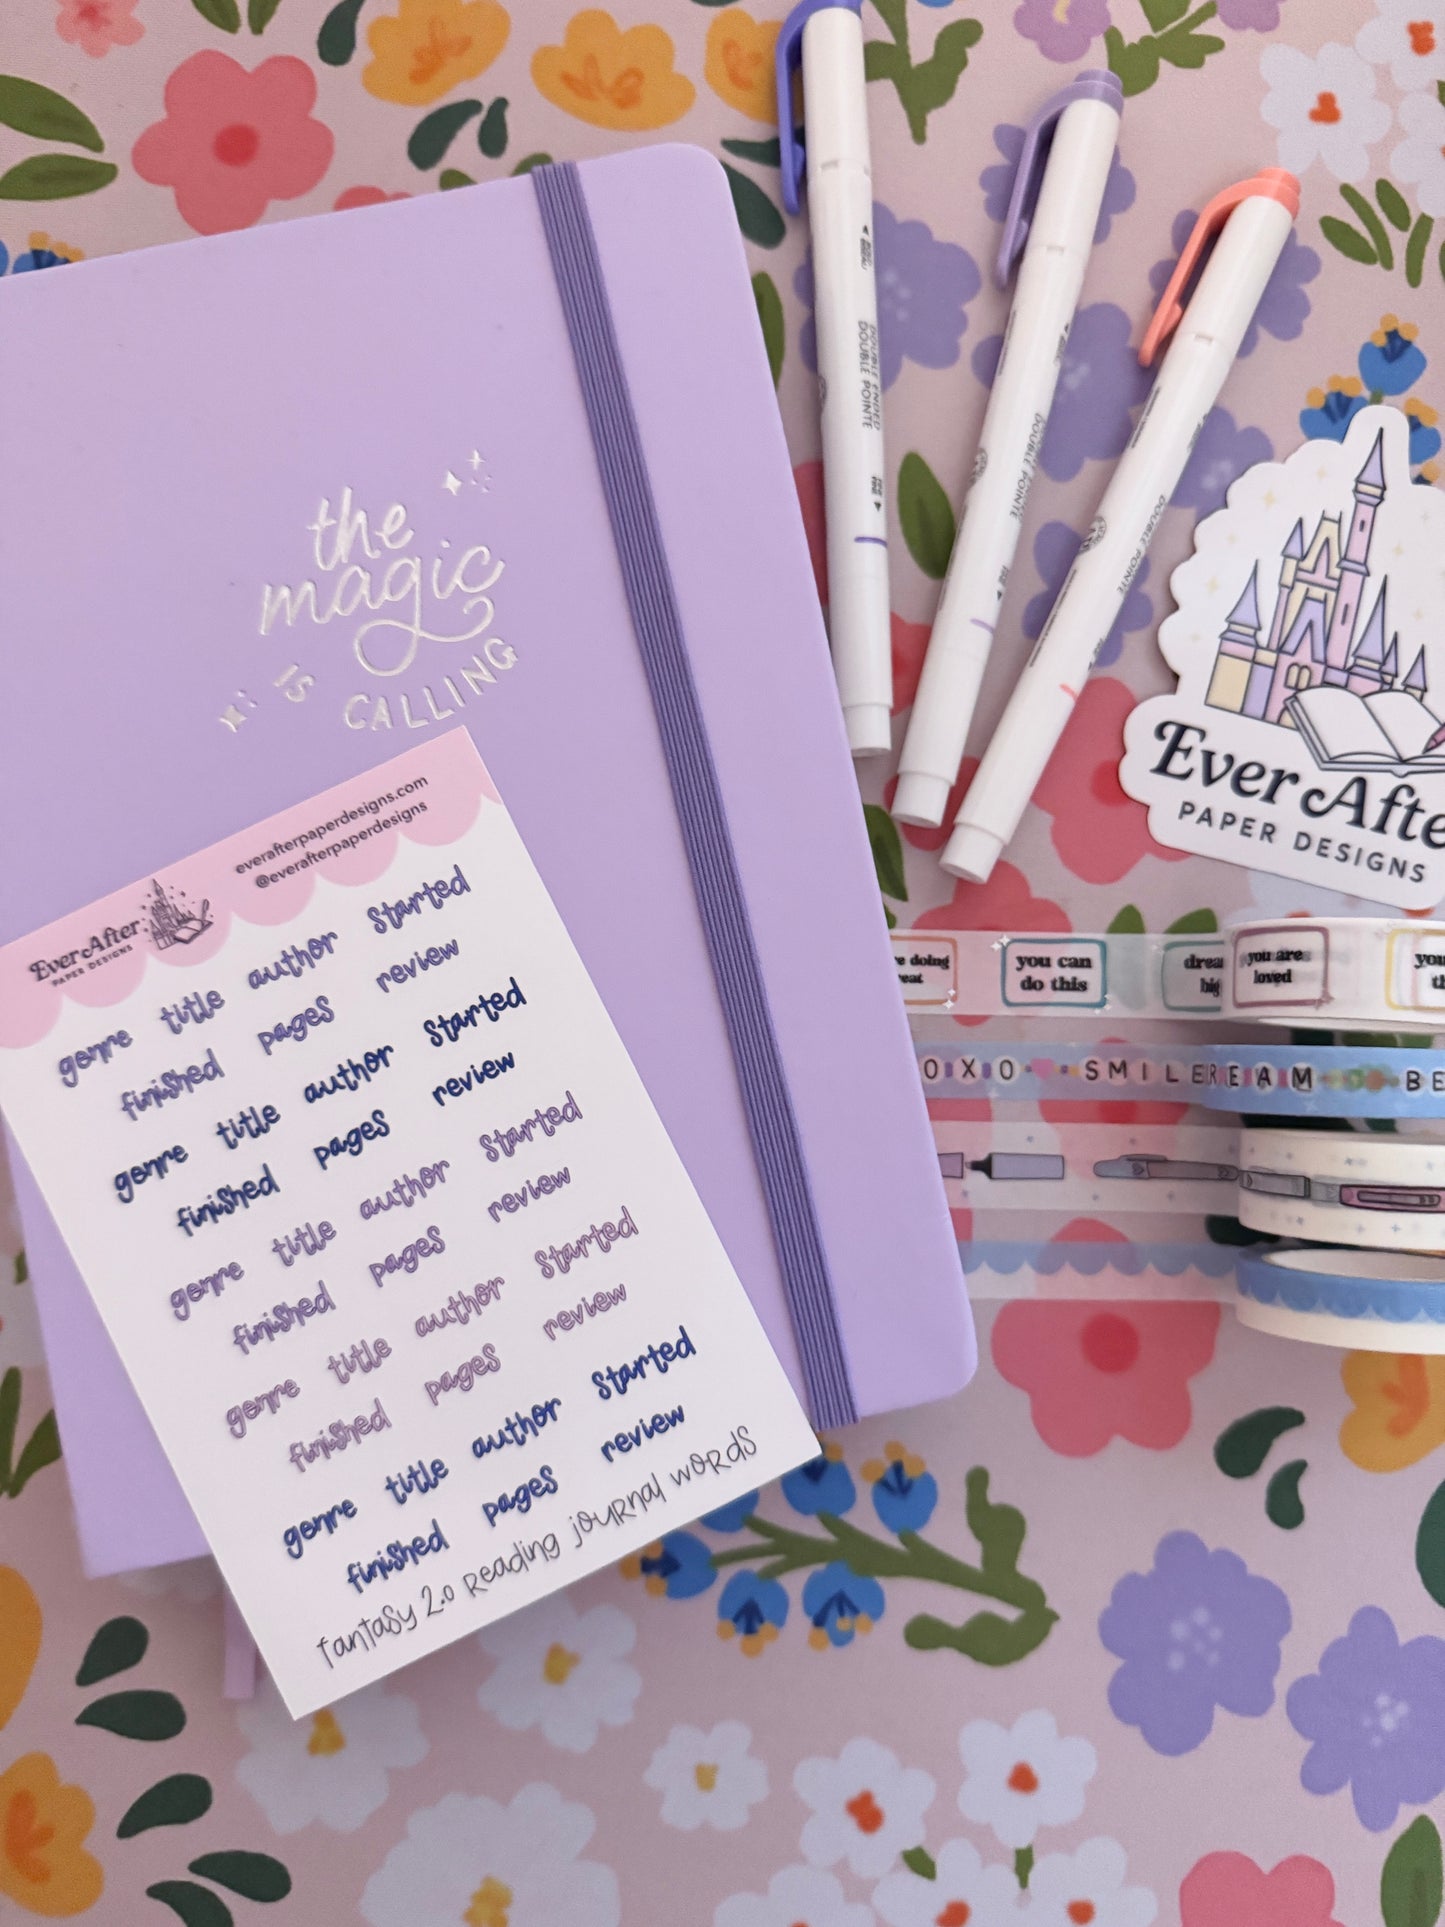 the
magic
is
CALLING
everafterpaperdesigns.com
@everafterpaperdesigns
Ever After
PAPER DESIGNS
genre title author started
finished pages review
genre title author started
finished pages review
genre title author started
finished pages review
genre title author started
finished pages review
genre title author started
finished pages review
fantasy 2.0 reading journal words
DOUBLE ENDED
DOUBLE POINTE
DOUBLE POINTE
DOUBLE POINTE
Ever Afte
PAPER DESIGNS
doing
eat
you can
do this
drea
big
you are
loved
you
th
OXO SMILE REAM BE